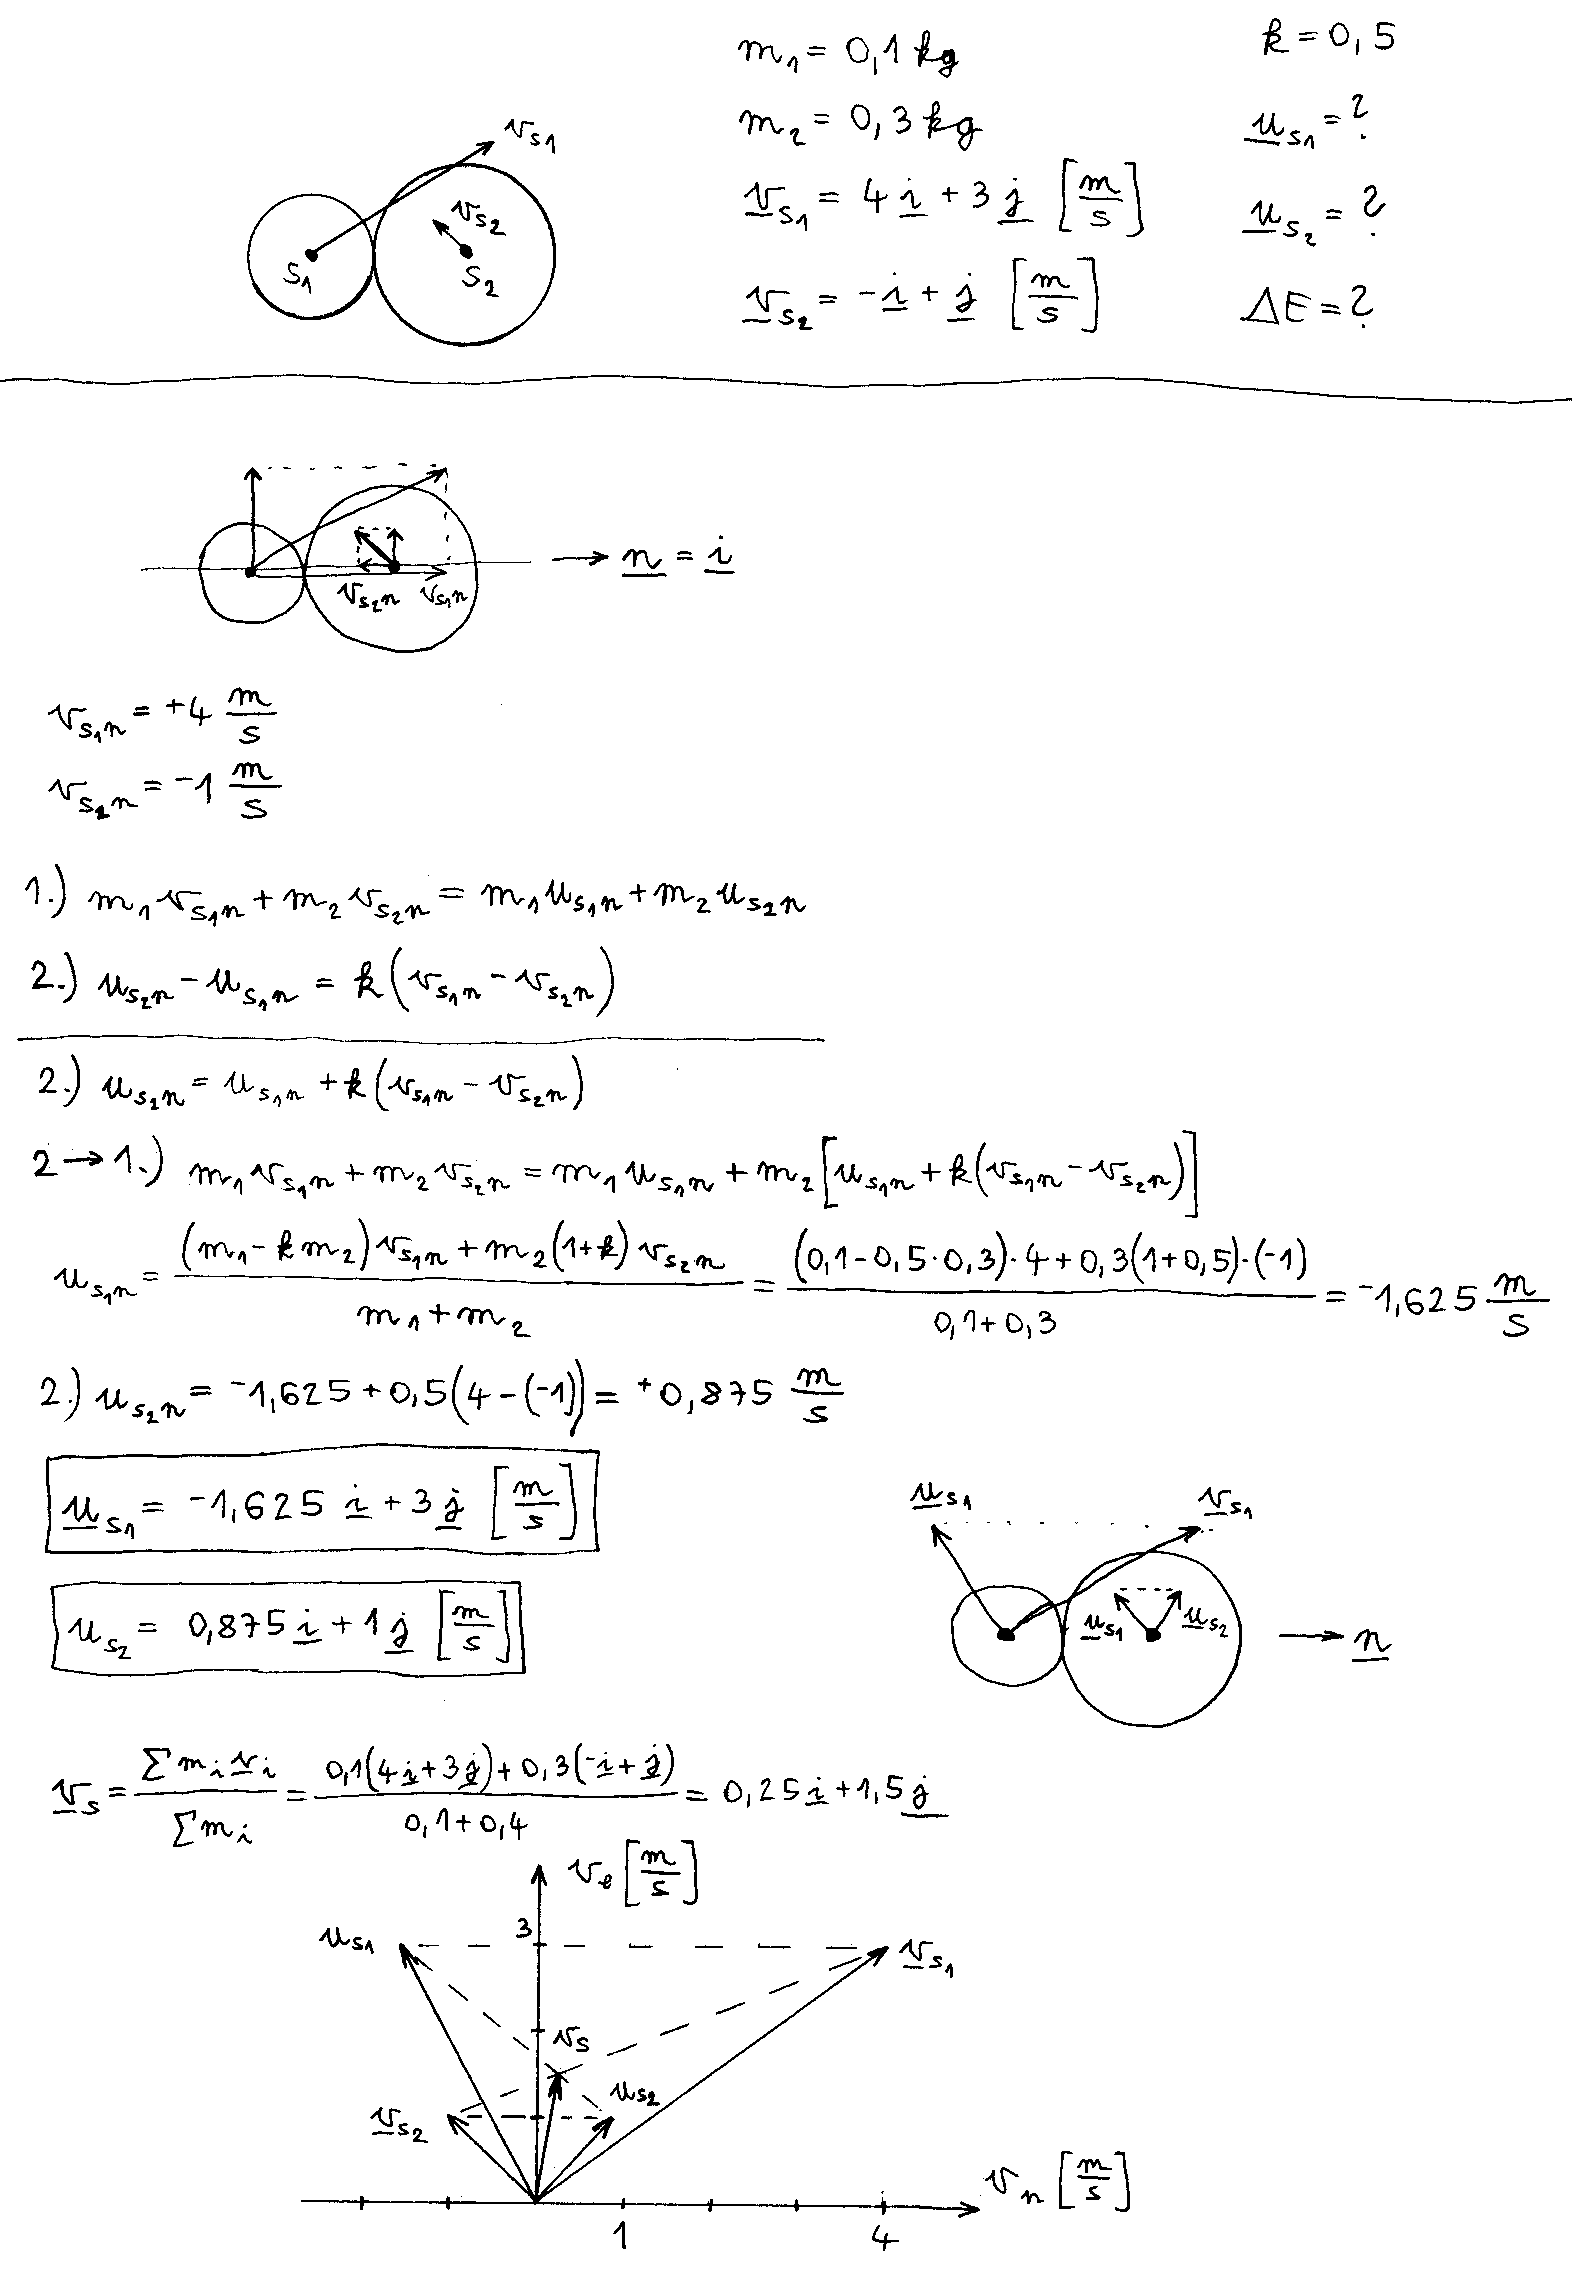 m₁ = 0,1 kg
k = 0,5
m₂ = 0,3 kg
u_S1 = ?
v_S1 = 4 i + 3 j [m/s]
u_S2 = ?
v_S2 = -i + j [m/s]
ΔE = ?
v_S1
v_S2
S1
S2
n = i
v_S2n v_S1n
v_S1n = +4 m/s
v_S2n = -1 m/s
1.) m₁ v_S1n + m₂ v_S2n = m₁ u_S1n + m₂ u_S2n
2.) u_S2n - u_S1n = k (v_S1n - v_S2n)
2.) u_S2n = u_S1n + k (v_S1n - v_S2n)
2 → 1.) m₁ v_S1n + m₂ v_S2n = m₁ u_S1n + m₂ [u_S1n + k (v_S1n - v_S2n)]
u_S1n = (m₁ - k m₂) v_S1n + m₂ (1+k) v_S2n / m₁ + m₂ = (0,1 - 0,5·0,3)·4 + 0,3(1+0,5)·(-1) / 0,1 + 0,3 = -1,625 m/s
2.) u_S2n = -1,625 + 0,5(4-(-1)) = +0,875 m/s
u_S1 = -1,625 i + 3 j [m/s]
u_S2 = 0,875 i + 1 j [m/s]
u_S1
v_S1
u_S1
u_S2
n
v_S = Σ m_i v_i / Σ m_i = 0,1(4i+3j) + 0,3(-i+j) / 0,1 + 0,4 = 0,25 i + 1,5 j
v_e [m/s]
u_S1
3
v_S1
v_S
u_S2
v_S2
v_n [m/s]
1
4